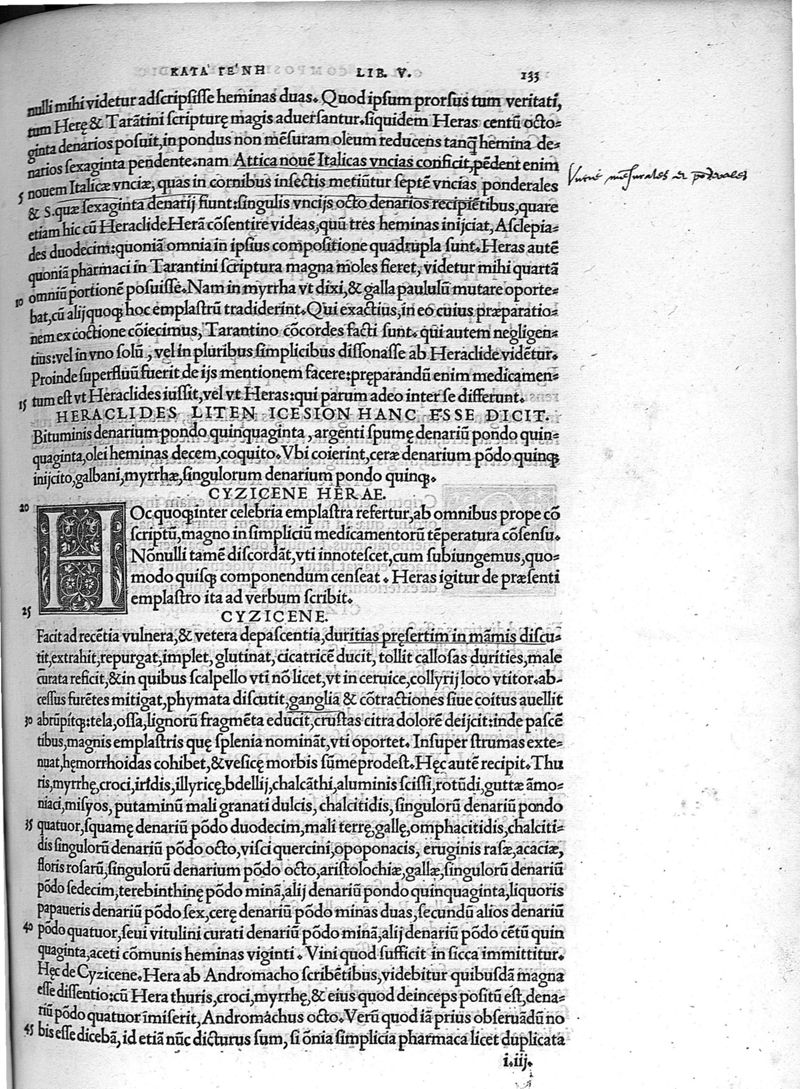 ΚΑΤΑ ΓΕΝΗ LIB. V. 133
nulli mihi videtur adſcripſiſſe heminas duas. Quod ipſum prorſus tum veritati,
tum Herę & Tarãtini ſcripturę magis aduerſantur. ſiquidem Heras centũ octo=
ginta denarios poſuit, in pondus non mẽſuram oleum reducens tanq̃ hemina de=
narios ſexaginta pendente. nam Attica nouẽ Italicas vncias conficit, pẽdent enim
5 nouem Italicæ vnciæ, quas in cornibus inſectis metiũtur ſeptẽ vncias ponderales
& S. quæ ſexaginta denarij fiunt: ſingulis vncijs octo denarios recipiẽtibus, quare
etiam hic cũ Heraclide Herã cõſentire videas, quũ tres heminas inijciat, Aſclepia=
des duodecim: quoniã omnia in ipſius compoſitione quadrupla ſunt. Heras autẽ
quoniã pharmaci in Tarantini ſcriptura magna moles fieret, videtur mihi quartã
10 omniũ portionẽ poſuiſſe. Nam in myrrha vt dixi, & galla paululũ mutare oporte=
bat, cũ alij quoq; hoc emplaſtrũ tradiderint. Qui exactius, in eo cuius præparatio=
nem ex coctione cõiecimus, Tarantino cõcordes facti ſunt. qui autem negligen=
tius: vel in vno ſolũ, vel in pluribus ſimplicibus diſſonaſſe ab Heraclide vidẽtur.
Proinde ſuperfluũ fuerit de ijs mentionem facere: pręparandũ enim medicamen=
15 tum eſt vt Heraclides iuſſit, vel vt Heras: qui parum adeo inter ſe differunt.
HERACLIDES LITEN ICESION HANC ESSE DICIT.
Bituminis denarium pondo quinquaginta, argenti ſpumę denariũ pondo quin=
quaginta, olei heminas decem, coquito. Vbi coierint, ceræ denarium põdo quinq;
inijcito, galbani, myrrhæ, ſingulorum denarium pondo quinq;.
CYZICENE HERAE.
20 HOc quoq; inter celebria emplaſtra refertur, ab omnibus prope cõ
ſcriptũ, magno in ſimpliciũ medicamentorũ tẽperatura cõſenſu.
Nõnulli tamẽ diſcordãt, vti innoteſcet, cum ſubiungemus, quo=
modo quiſq; componendum cenſeat. Heras igitur de præſenti
emplaſtro ita ad verbum ſcribit.
25 CYZICENE.
Facit ad recẽtia vulnera, & vetera depaſcentia, duritias pręſertim in mãmis diſcu=
tit, extrahit, repurgat, implet, glutinat, cicatricẽ ducit, tollit calloſas durities, male
curata reficit, & in quibus ſcalpello vti nõ licet, vt in ceruice, collyrij loco vtitor. ab=
ceſſus furẽtes mitigat, phymata diſcutit, ganglia & cõtractiones ſiue coitus auellit
30 abrũpitq;: tela, oſſa, lignorũ fragmẽta educit, cruſtas citra dolorẽ deijcit: inde paſcẽ
tibus, magnis emplaſtris quę ſplenia nominãt, vti oportet. Inſuper ſtrumas exte=
nuat, hęmorrhoidas cohibet, & veſicę morbis ſũme prodeſt. Hęc autẽ recipit. Thu
ris, myrrhę, croci, iridis, illyricę, bdellij, chalcãthi, aluminis ſciſſi, rotũdi, guttæ ãmo=
niaci, miſyos, putaminũ mali granati dulcis, chalcitidis, ſingulorũ denariũ pondo
35 quatuor, ſquamę denariũ põdo duodecim, mali terrę, gallę, omphacitidis, chalciti=
dis ſingulorũ denariũ põdo octo, viſci quercini, opoponacis, eruginis raſæ, acaciæ,
floris roſarũ, ſingulorũ denarium põdo octo, ariſtolochiæ, gallæ, ſingulorũ denariũ
põdo ſedecim, terebinthinę põdo minã, alij denariũ pondo quinquaginta, liquoris
papaueris denariũ põdo ſex, cerę denariũ põdo minas duas, ſecundũ alios denariũ
40 põdo quatuor, ſeui vitulini curati denariũ põdo minã, alij denariũ põdo cẽtũ quin
quaginta, aceti cõmunis heminas viginti. Vini quod ſufficit in ſicca immittitur.
Hęc de Cyzicene. Hera ab Andromacho ſcribẽtibus, videbitur quibuſdã magna
eſſe diſſentio: cũ Hera thuris, croci, myrrhę, & eius quod deinceps poſitũ eſt, dena=
riũ põdo quatuor ĩmiſerit, Andromachus octo. Verũ quod iã prius obſeruãdũ no
45 bis eſſe dicebã, id etiã nũc dicturus ſum, ſi õnia ſimplicia pharmaca licet duplicata
i. iij.
Vnciæ meſurales et põderales